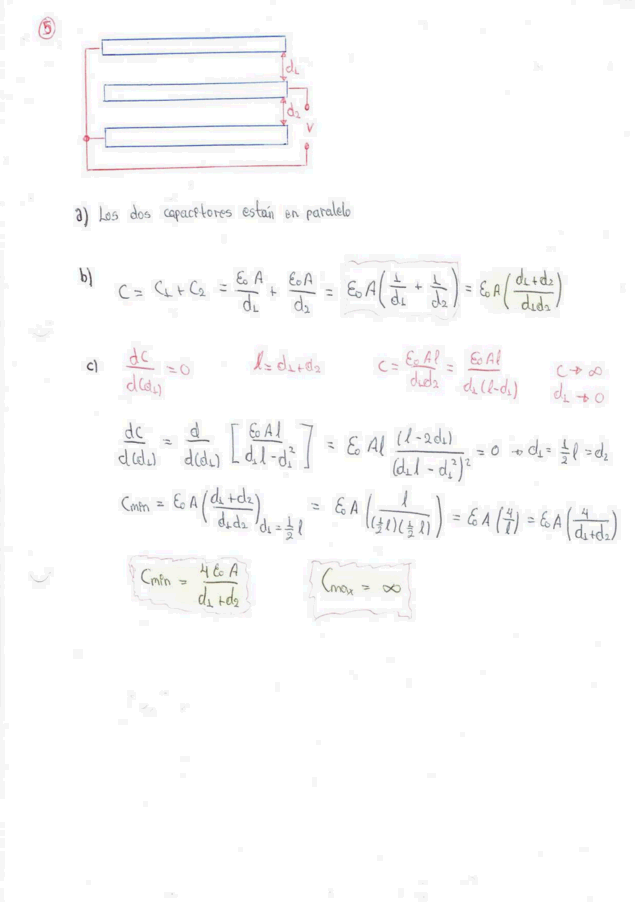 5
d₁
d₂
V
a) Los dos capacitores están en paralelo
b) C = C₁ + C₂ = ε₀A/d₁ + ε₀A/d₂ = ε₀A(1/d₁ + 1/d₂) = ε₀A((d₁+d₂)/(d₁d₂))
c) dC/d(d₁) = 0 l = d₁+d₂ C = ε₀Al/(d₁d₂) = ε₀Al/(d₁(l-d₁)) C → ∞
d₁ → 0
dC/d(d₁) = d/d(d₁) [ε₀Al/(d₁l-d₁²)] = ε₀Al (l-2d₁)/(d₁l-d₁²)² = 0 → d₁ = 1/2 l = d₂
Cmín = ε₀A((d₁+d₂)/(d₁d₂)) d₁=1/2 l = ε₀A(l/((1/2 l)(1/2 l))) = ε₀A(4/l) = ε₀A(4/(d₁+d₂))
Cmín = 4ε₀A/(d₁+d₂) Cmax = ∞